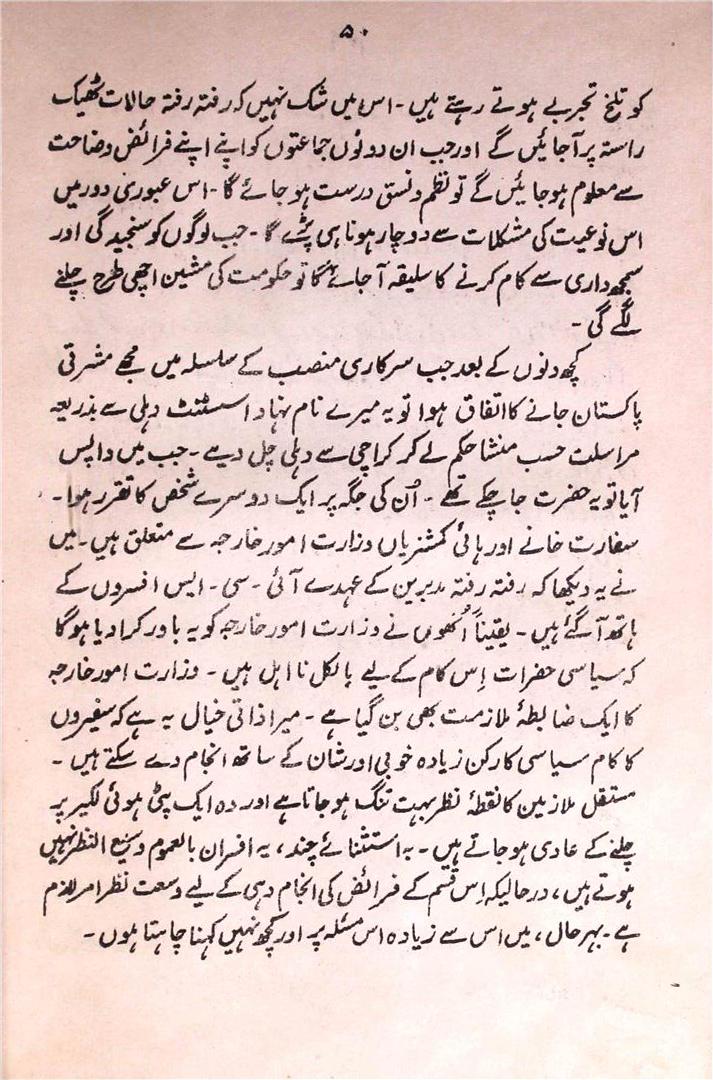 ۵۰
کو تلخ تجربے ہوتے رہتے ہیں ۔ اس میں شک نہیں کہ رفتہ رفتہ حالات ٹھیک
راستہ پر آجائیں گے اور جب ان دونوں جماعتوں کو اپنے اپنے فرائض وضاحت
سے معلوم ہوجائیں گے تو نظم و نسق درست ہوجائے گا ۔ اس عبوری دور میں
اس نوعیت کی مشکلات سے دوچار ہونا ہی پڑے گا ۔ جب لوگوں کو سنجیدگی اور
سمجھ داری سے کام کرنے کا سلیقہ آجائے گا تو حکومت کی مشین اچھی طرح چلنے
لگے گی ۔
کچھ دنوں کے بعد جب سرکاری منصب کے سلسلہ میں مجھے مشرقی
پاکستان جانے کا اتفاق ہوا تو یہ میرے نام نہاد اسسٹنٹ دہلی سے بذریعہ
مراسلت حسب منشا حکم لے کر کراچی سے دہلی چل دیے ۔ جب میں واپس
آیا تو یہ حضرت جاچکے تھے ۔ اُن کی جگہ پر ایک دوسرے شخص کا تقرر ہوا ۔
سفارت خانے اور ہائی کمشنریاں وزارت امور خارجہ سے متعلق ہیں ۔ میں
نے یہ دیکھا کہ رفتہ رفتہ مدبرین کے عہدے آئی ۔ سی ۔ ایس افسروں کے
ہاتھ آگئے ہیں ۔ یقیناً اُنھوں نے وزارت امور خارجہ کو یہ باور کرادیا ہوگا
کہ سیاسی حضرات اِس کام کے لیے بالکل نااہل ہیں ۔ وزارت امور خارجہ
کا ایک ضابطۂ ملازمت بھی بن گیا ہے ۔ میرا ذاتی خیال یہ ہے کہ سفیروں
کا کام سیاسی کارکن زیادہ خوبی اور شان کے ساتھ انجام دے سکتے ہیں ۔
مستقل ملازمین کا نقطۂ نظر بہت تنگ ہوجاتا ہے اور وہ ایک پٹی ہوئی لکیر پر
چلنے کے عادی ہوجاتے ہیں ۔ بہ استثنائے چند ، یہ افسران بالعموم وسیع النظر نہیں
ہوتے ہیں ، درحالیکہ اِس قسم کے فرائض کی انجام دہی کے لیے وسعت نظر امر لازم
ہے ۔ بہرحال ، میں اس سے زیادہ اس مسئلہ پر اور کچھ نہیں کہنا چاہتا ہوں ۔